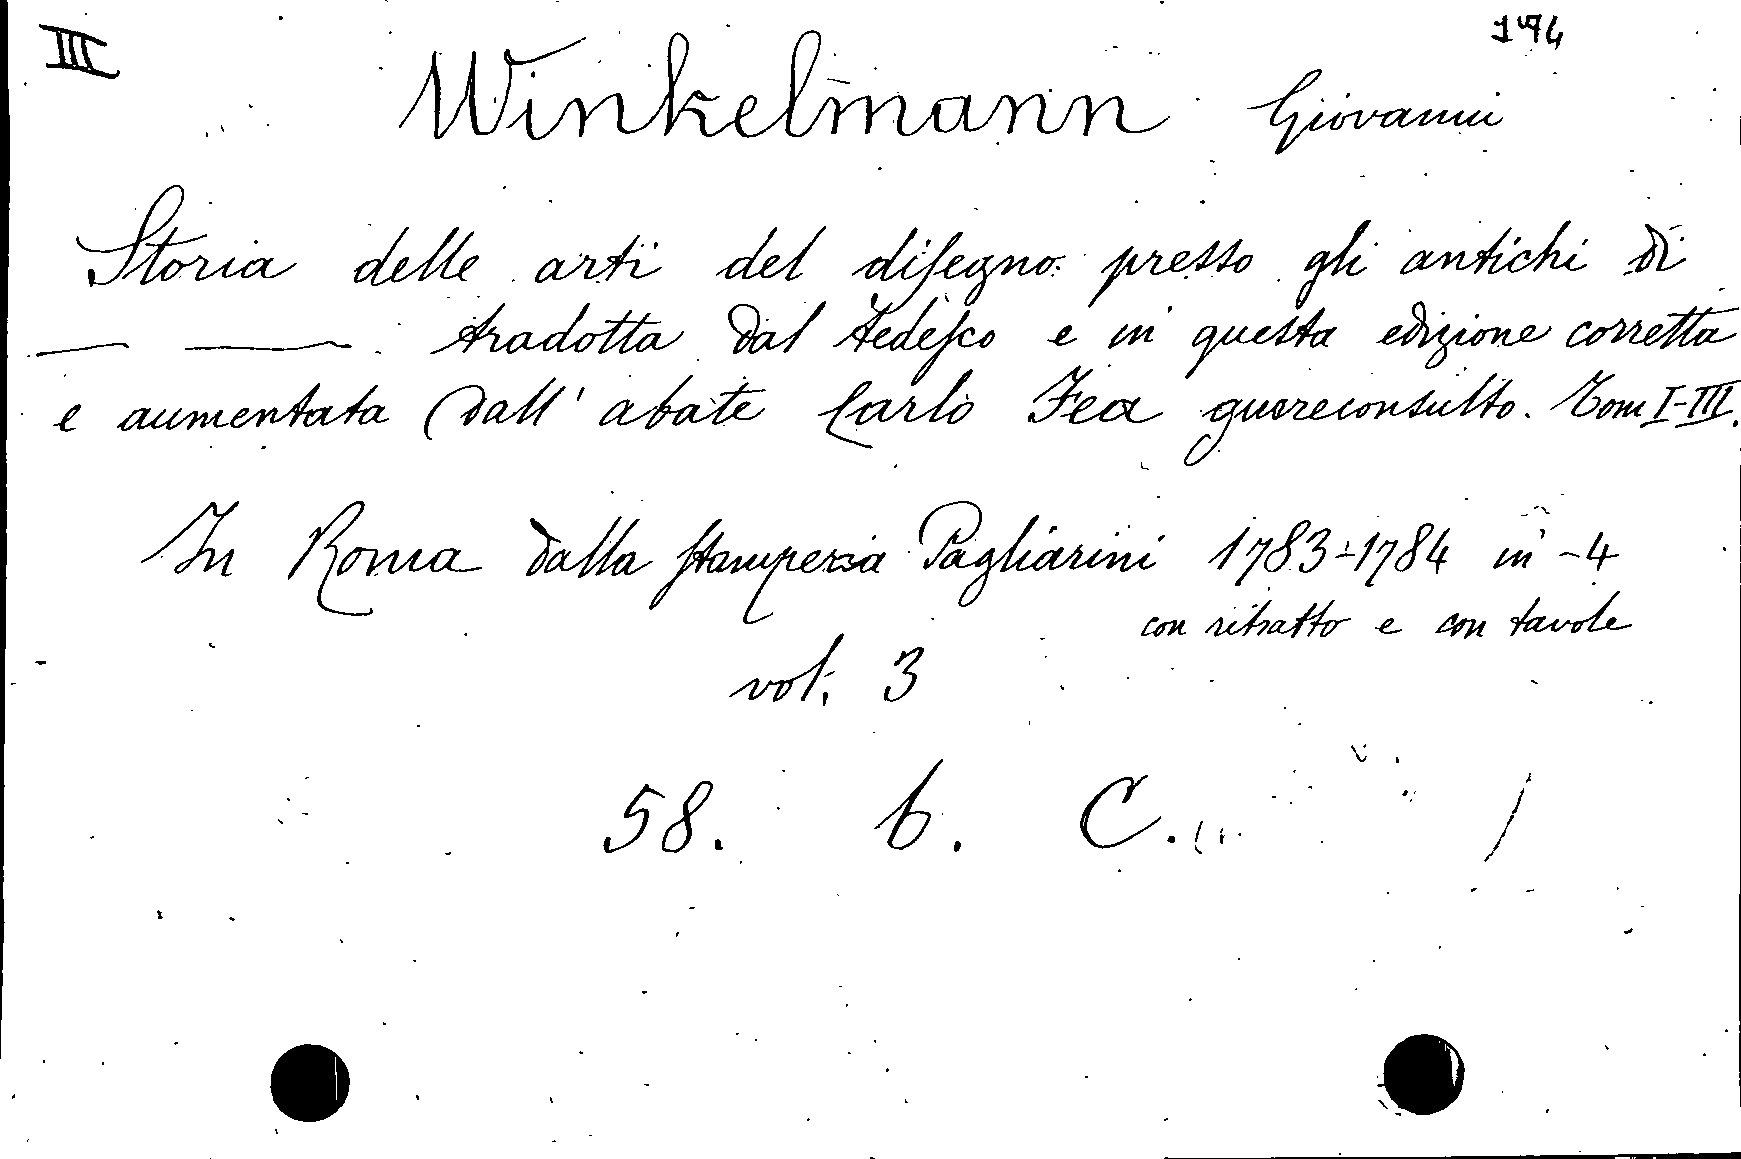 III
Winkelmann Giovanni
Storia delle arti del disegno presso gli antichi di
— — tradotta dal tedesco e in questa edizione corretta
e aumentata dall' abate Carlo Fea guereconsulto. Tom I-III.
In Roma dalla stamperia Pagliarini 1783-1784 in -4
con ritratto e con tavole
vol. 3
58. b. C.